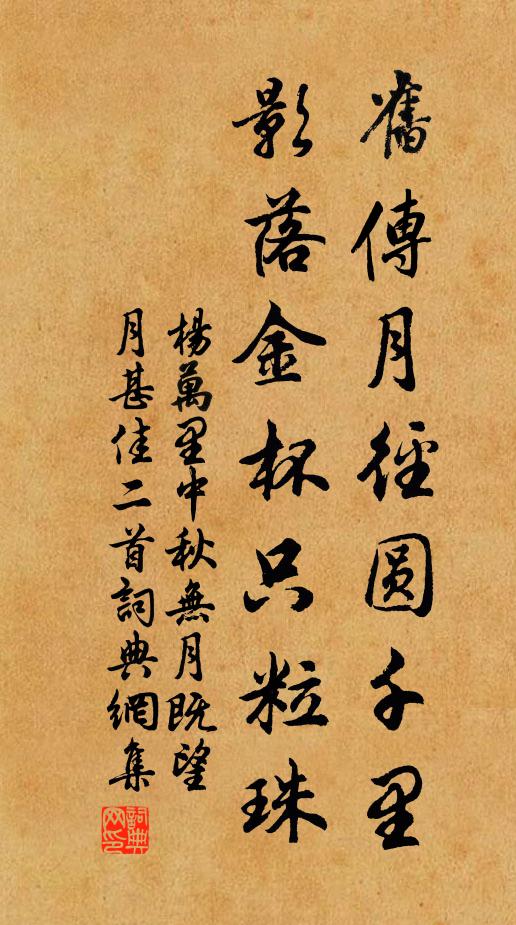 舊傳月徑圓千里
影落金杯只粒珠
楊萬里中秋無月既望
月甚佳二首詞典網集
詞典网印